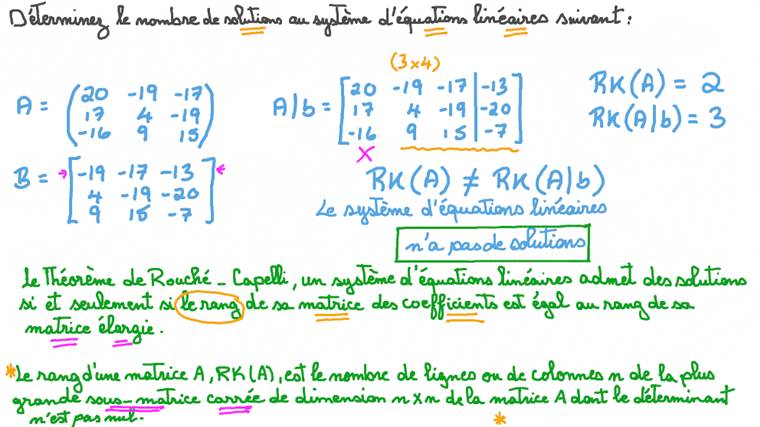 Déterminez le nombre de solutions au système d'équations linéaires suivant :
(3×4)
A = (20 -19 -17
17 4 -19
-16 9 15)
A|b = [20 -19 -17 | -13
17 4 -19 | -20
-16 9 15 | -7]
×
RK(A) = 2
RK(A|b) = 3
B = [-19 -17 -13
4 -19 -20
9 15 -7]
RK(A) ≠ RK(A|b)
Le système d'équations linéaires
n'a pas de solutions
Le Théorème de Rouché-Capelli, un système d'équations linéaires admet des solutions
si et seulement si le rang de sa matrice des coefficients est égal au rang de sa
matrice élargie.
*Le rang d'une matrice A, RK(A), est le nombre de lignes ou de colonnes n de la plus
grande sous-matrice carrée de dimension n×n de la matrice A dont le déterminant
n'est pas nul.
*